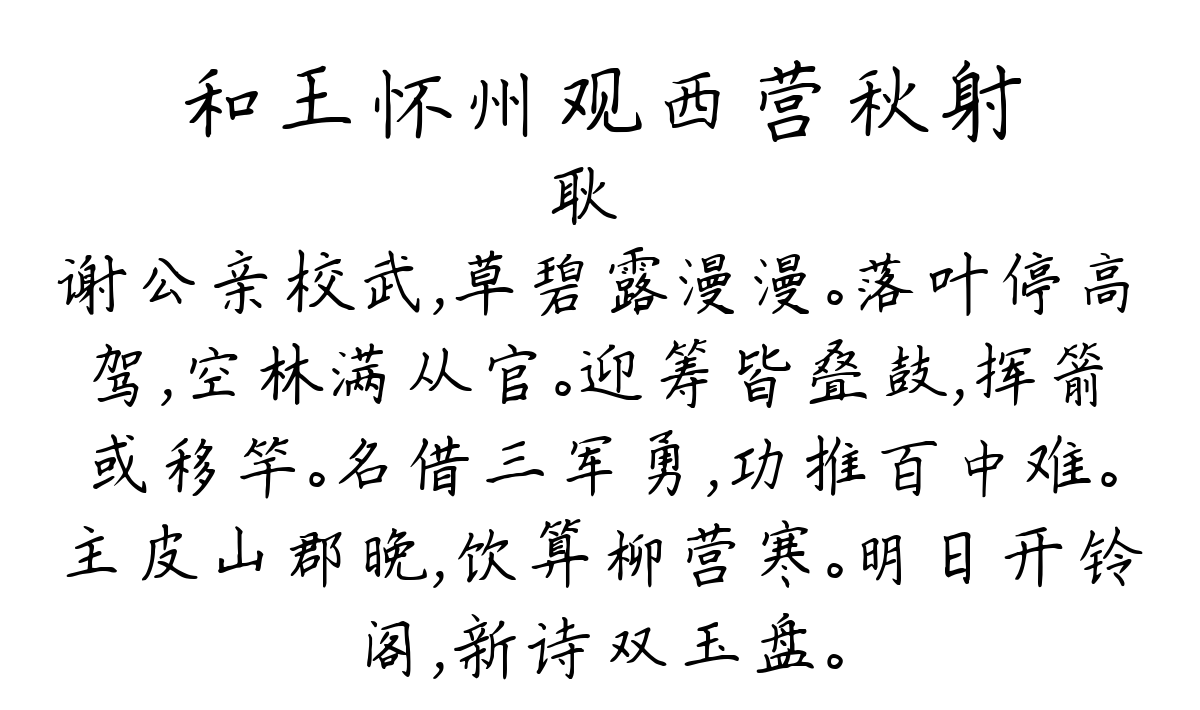 和王怀州观西营秋射
耿
谢公亲校武,草碧露漫漫。落叶停高
驾,空林满从官。迎筹皆叠鼓,挥箭
或移竿。名借三军勇,功推百中难。
主皮山郡晚,饮算柳营寒。明日开铃
阁,新诗双玉盘。